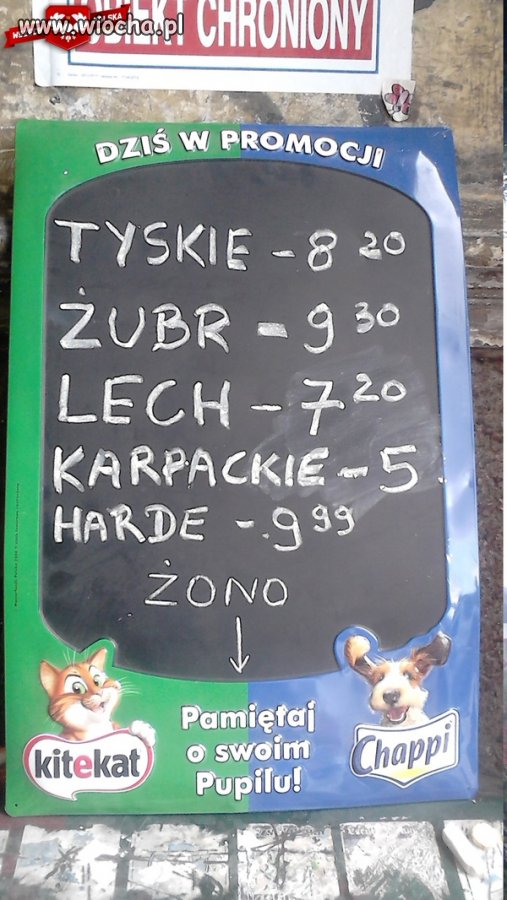 www.wiocha.pl
OBIEKT CHRONIONY
DZIŚ W PROMOCJI
TYSKIE - 8 20
ŻUBR - 9 30
LECH - 7 20
KARPACKIE - 5
HARDE - 9 99
ŻONO
↓
Pamiętaj
o swoim
Pupilu!
kitekat
Chappi